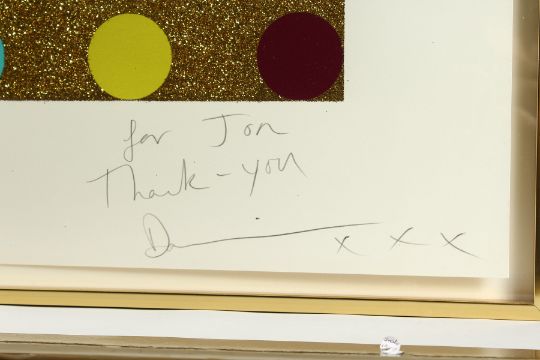 for Jon
Thank-you
Damien x x x